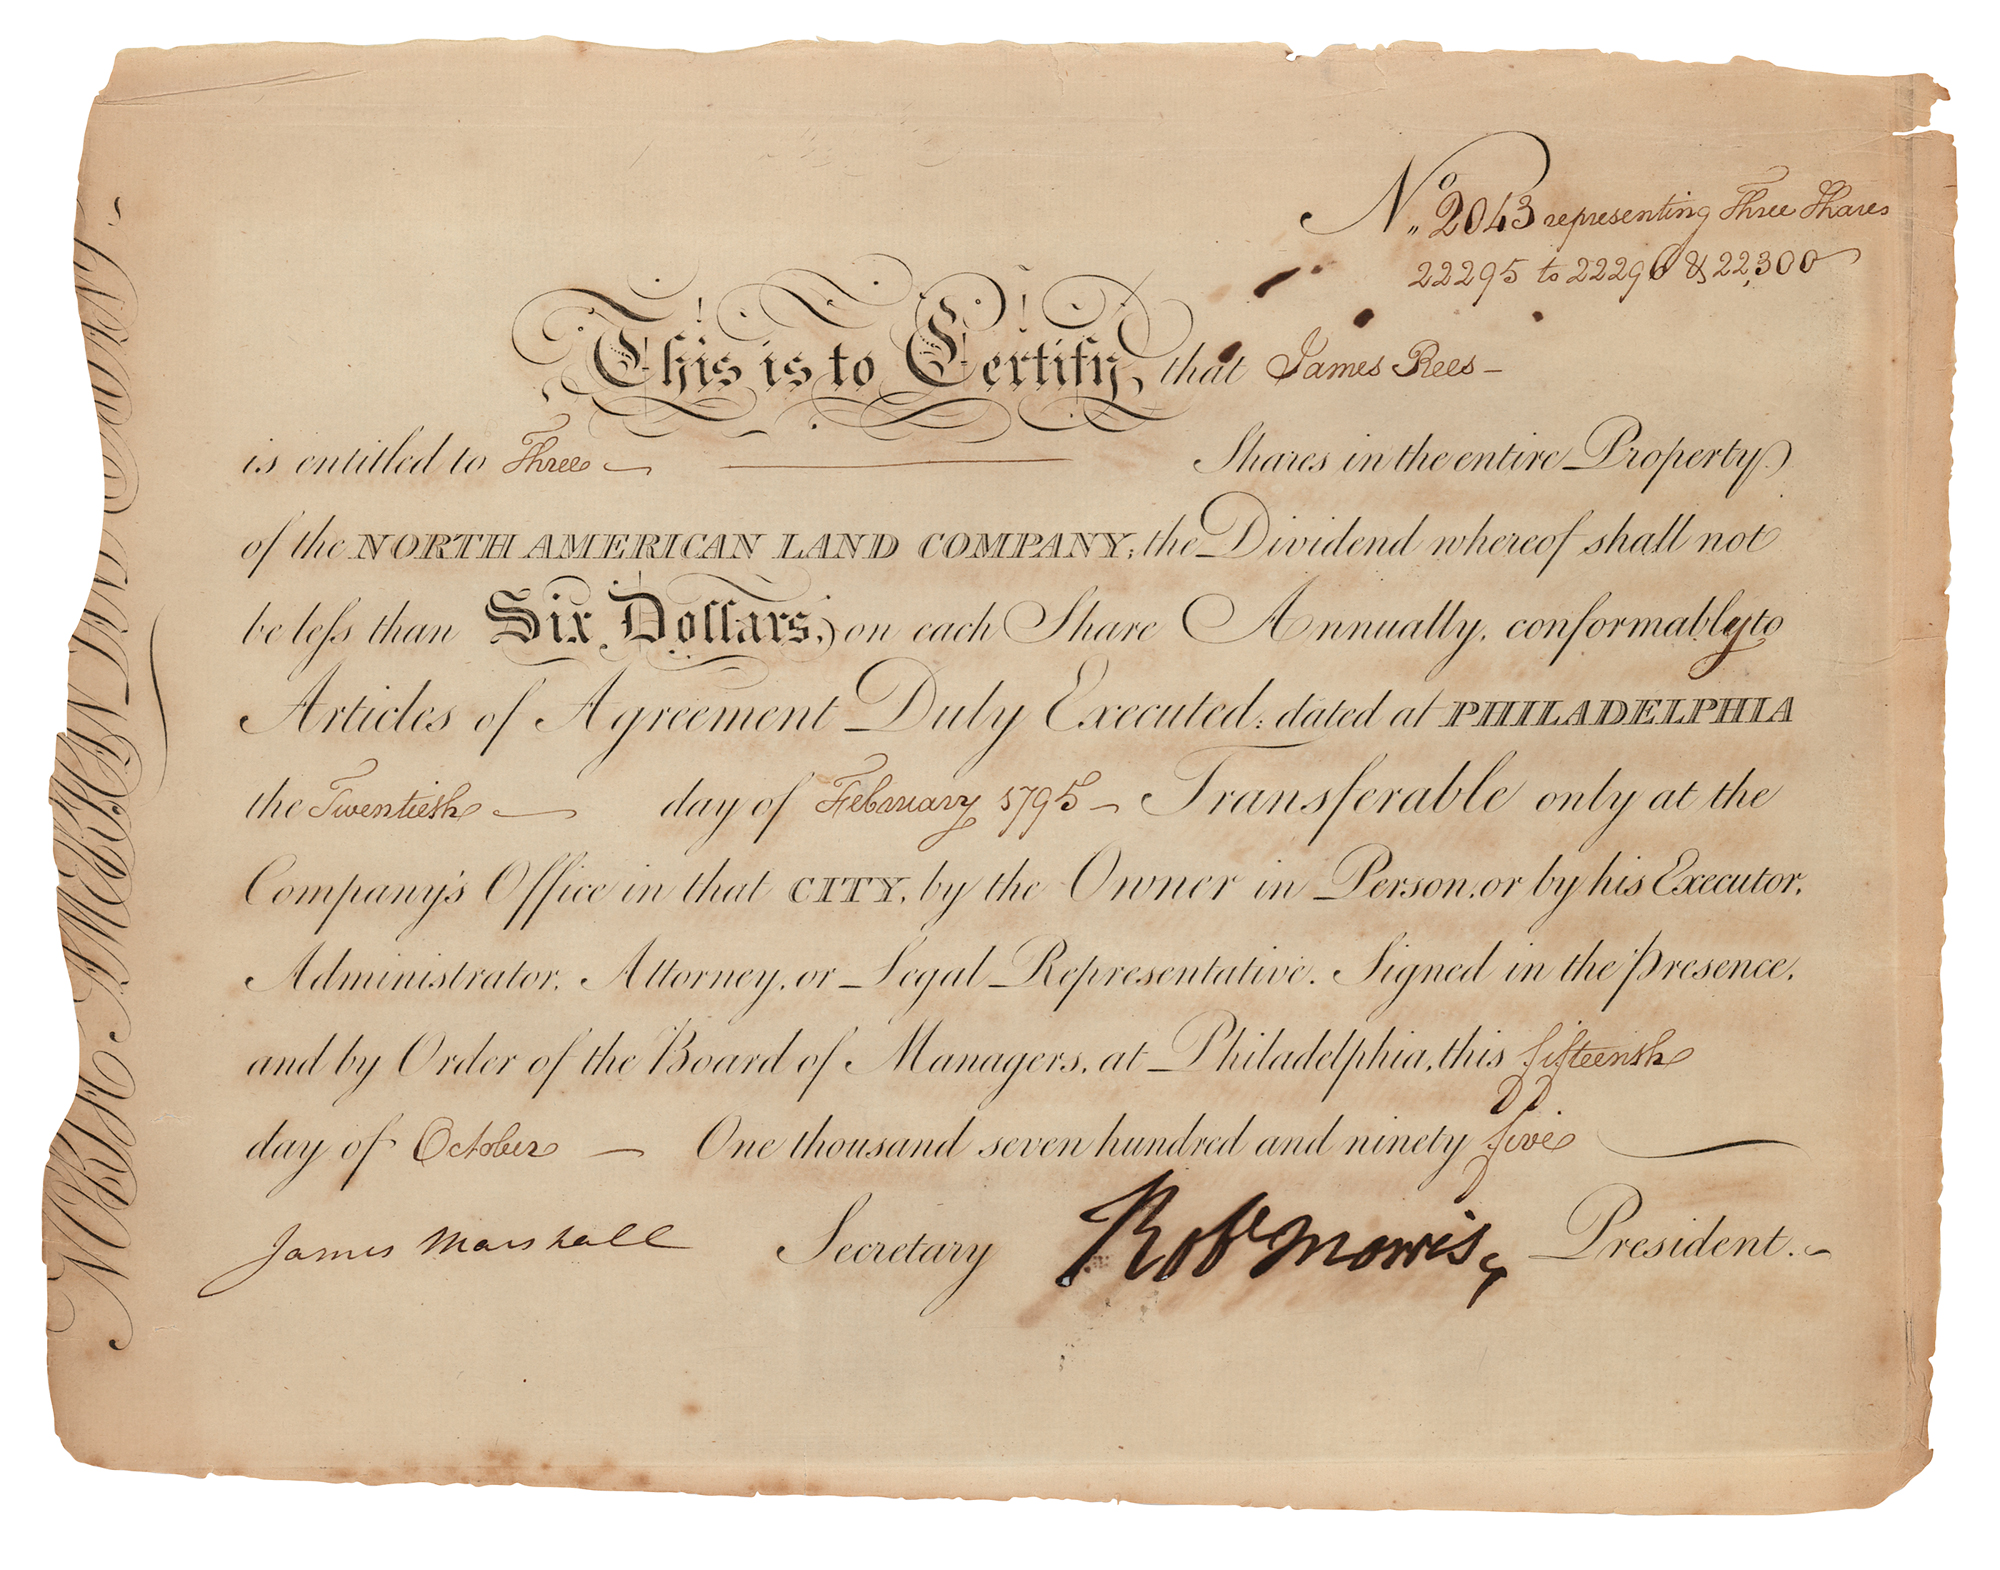 No. 2043 representing Three Shares
22295 to 22296 & 22,300
This is to Certify, that James Rees -
is entitled to Three Shares in the entire Property
of the NORTH AMERICAN LAND COMPANY; the Dividend whereof shall not
be leſs than Six Dollars, on each Share Annually, conformably to
Articles of Agreement Duly Executed: dated at PHILADELPHIA
the Twentieth day of February 1795 - Transferable only at the
Company's Office in that CITY, by the Owner in Person, or by his Executor,
Administrator, Attorney, or Legal Representative. Signed in the presence,
and by Order of the Board of Managers, at Philadelphia, this fifteenth
day of October - One thousand seven hundred and ninety five
James Marshall Secretary Robt Morris, President.
NORTH AMERICAN LAND COMPANY